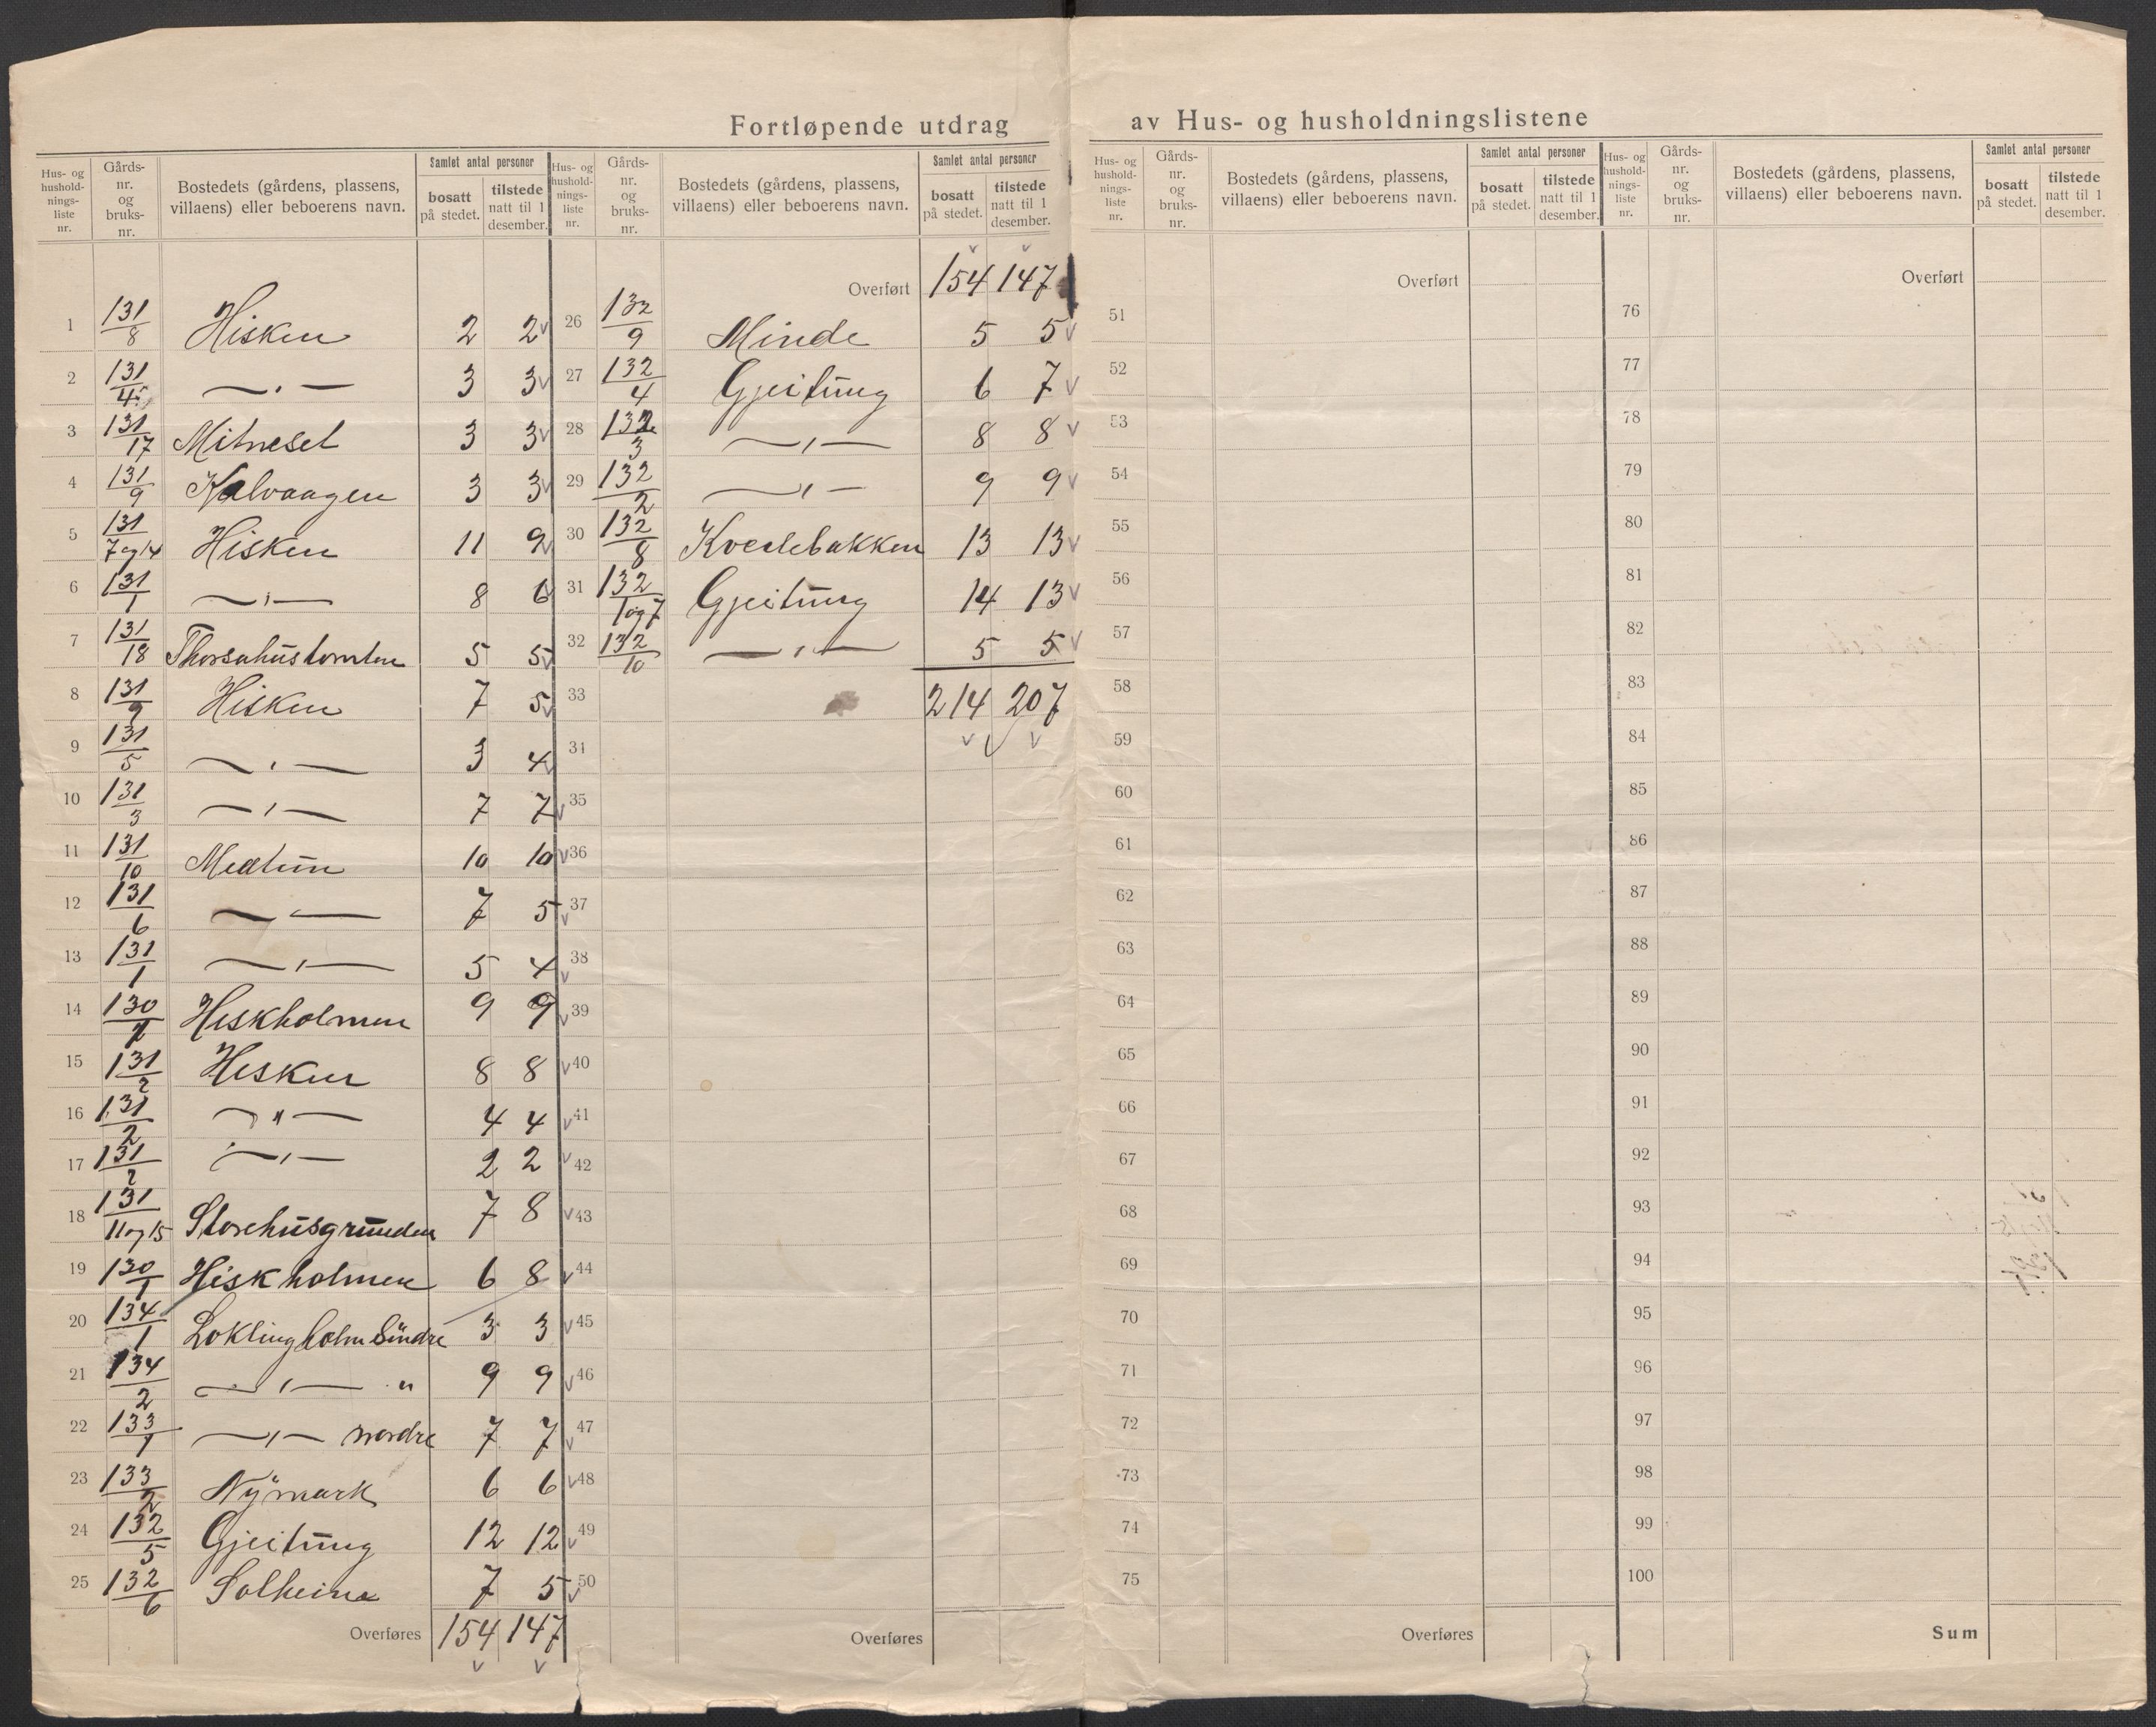 Fortløpende utdrag av Hus- og husholdningslistene
Hus- og hushold-nings-liste nr. | Gårds-nr. og bruks-nr. | Bostedets (gårdens, plassens, villaens) eller beboerens navn. | Samlet antal personer | bosatt på stedet. | tilstede natt til 1 desember.
1 131/8 Hisken 2 2 v
2 131/4 — " — 3 3 v
3 131/17 Mitneset 3 3 v
4 131/9 Kalvaagen 3 3 v
5 131/7 og 14 Hisken 11 9 v
6 131/1 — " — 8 6 v
7 131/18 Thorsahustomten 5 5 v
8 131/9 Hisken 7 5 v
9 131/5 — " — 3 4 v
10 131/3 — " — 7 7 v
11 131/10 Medtun 10 10 v
12 131/6 — " — 7 5 v
13 131/1 — " — 5 4 v
14 130/ Hiskholmen 9 9 v
15 131/2 Hisken 8 8 v
16 131/2 — " — 4 4 v
17 131/2 — " — 2 2 v
18 131/11 og 15 Storehusgrunden 7 8 v
19 130/1 Hiskholmen 6 8 v
20 134/1 Loklingholm Søndre 3 3 v
21 134/2 — " — " 9 9 v
22 133/1 — " — nordre 7 7 v
23 133/2 Nymark 6 6 v
24 132/5 Gjeitung 12 12 v
25 132/6 Solheim 7 5 v
Overføres 154 147
v v
Hus- og hushold-nings-liste nr. | Gårds-nr. og bruks-nr. | Bostedets (gårdens, plassens, villaens) eller beboerens navn. | Samlet antal personer | bosatt på stedet. | tilstede natt til 1 desember.
v v
Overført 154 147
26 132/9 Minde 5 5 v
27 132/4 Gjeitung 6 7 v
28 132/3 — " — 8 8 v
29 132/2 — " — 9 9 v
30 132/8 Kvednebakken 13 13 v
31 132/1 og 7 Gjeitung 14 13 v
32 132/10 — " — 5 5 v
33 214 207
34 v v v
35
36
37
38
39
40
41
42
43
44
45
46
47
48
49
50
Overføres
Hus- og hushold-nings-liste nr. | Gårds-nr. og bruks-nr. | Bostedets (gårdens, plassens, villaens) eller beboerens navn. | Samlet antal personer | bosatt på stedet. | tilstede natt til 1 desember.
Overført
51
52
53
54
55
56
57
58
59
60
61
62
63
64
65
66
67
68
69
70
71
72
73
74
75
Overføres
Hus- og hushold-nings-liste nr. | Gårds-nr. og bruks-nr. | Bostedets (gårdens, plassens, villaens) eller beboerens navn. | Samlet antal personer | bosatt på stedet. | tilstede natt til 1 desember.
Overført
76
77
78
79
80
81
82
83
84
85
86
87
88
89
90
91
92
93
94
95
96
97
98
99
100
Sum